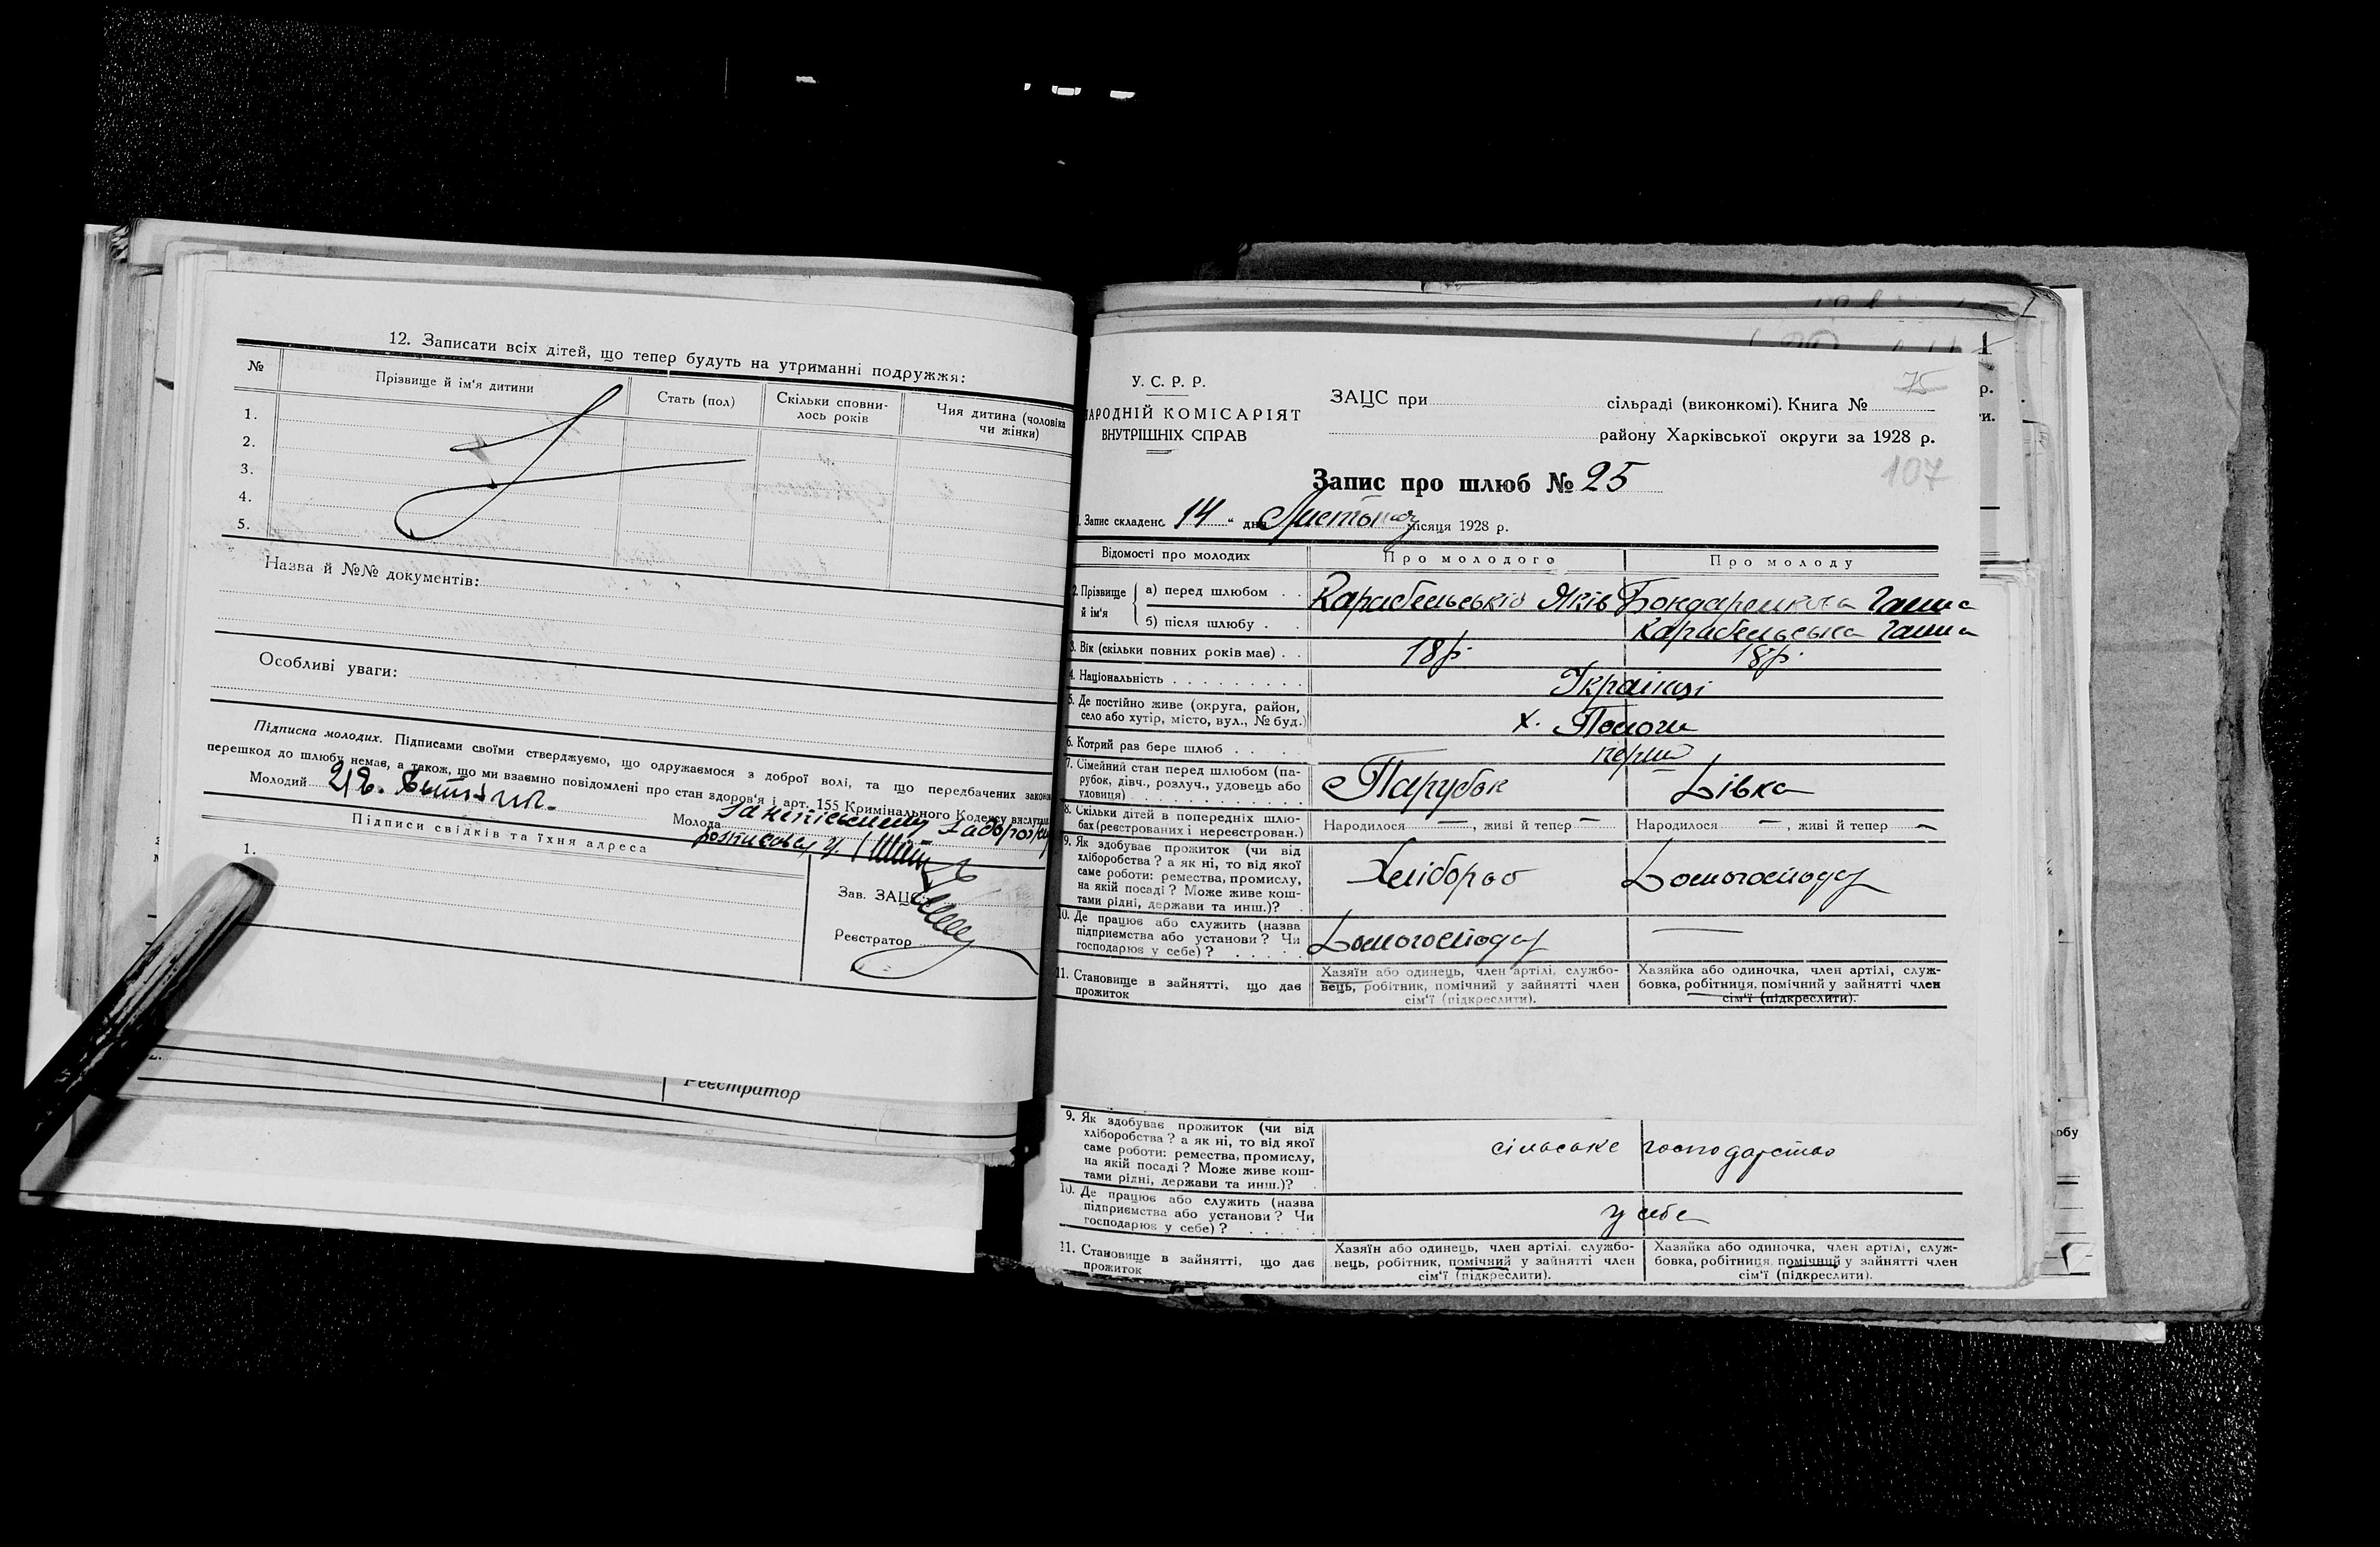 12. Записати всіх дітей, що тепер будуть на утриманні подружжя:
№
Прізвище й ім'я дитини
Стать (пол)
Скільки сповни-
лось років
Чия дитина (чоловіка
чи жінки)
1.
2.
3.
4.
5.
Назва й №№ документів:
Особливі уваги:
Підписка молодих. Підписами своїми стверджуємо, що одружаємося з доброї волі, та що передбачених законом
перешкод до шлюбу немає, а також, що ми взаємно повідомлені про стан здоров'я і арт. 155 Кримінального Кодексу вислухали
Молодий
Молода
Підписи свідків та їхня адреса
1.
Зав. ЗАЦС
Реєстратор
Реєстратор
У. С. Р. Р.
НАРОДНІЙ КОМІСАРІЯТ
ВНУТРІШНІХ СПРАВ
75
ЗАЦС при сільраді (виконкомі). Книга №
району Харківської округи за 1928 р.
107
Запис про шлюб № 25
1. Запис складено 14 " дня Листопад місяця 1928 р.
Відомості про молодих
Про молодого
Про молоду
2. Прізвище й ім'я
а) перед шлюбом . .
Яків
Ганна
б) після шлюбу . .
Ганна
3. Вік (скільки повних років має) . .
18 р.
18 р.
4. Національність
Українці
5. Де постійно живе (округа, район,
село або хутір, місто, вул., № буд.)
х.
6. Котрий раз бере шлюб
перший
7. Сімейний стан перед шлюбом (па-
рубок, дівч., розлуч., удовець або
удовиця)
Парубок
Дівка
8. Скільки дітей в попередніх шлю-
бах (реєстрованих і нереєстрован.)
Народилося — , живі й тепер —
Народилося — , живі й тепер —
9. Як здобуває прожиток (чи від
хліборобства? а як ні, то від якої
саме роботи: ремества, промислу,
на якій посаді? Може живе кош-
тами рідні, держави та инш.)?
Хлібороб
Домогосподар
10. Де працює або служить (назва
підприємства або установи? Чи
господарює у себе)?
Домогосподар
—
11. Становище в зайнятті, що дає
прожиток
Хазяїн або одинець, член артілі, службо-
вець, робітник, помічний у зайнятті член
сім'ї (підкреслити).
Хазяйка або одиночка, член артілі, служ-
бовка, робітниця, помічний у зайнятті член
сім'ї (підкреслити).
9. Як здобуває прожиток (чи від
хліборобства? а як ні, то від якої
саме роботи: ремества, промислу,
на якій посаді? Може живе кош-
тами рідні, держави та инш.)?
сільське господарство
10. Де працює або служить (назва
підприємства або установи? Чи
господарює у себе)?
у себе
11. Становище в зайнятті, що дає
прожиток
Хазяїн або одинець, член артілі, службо-
вець, робітник, помічний у зайнятті член
сім'ї (підкреслити).
Хазяйка або одиночка, член артілі, служ-
бовка, робітниця, помічний у зайнятті член
сім'ї (підкреслити).